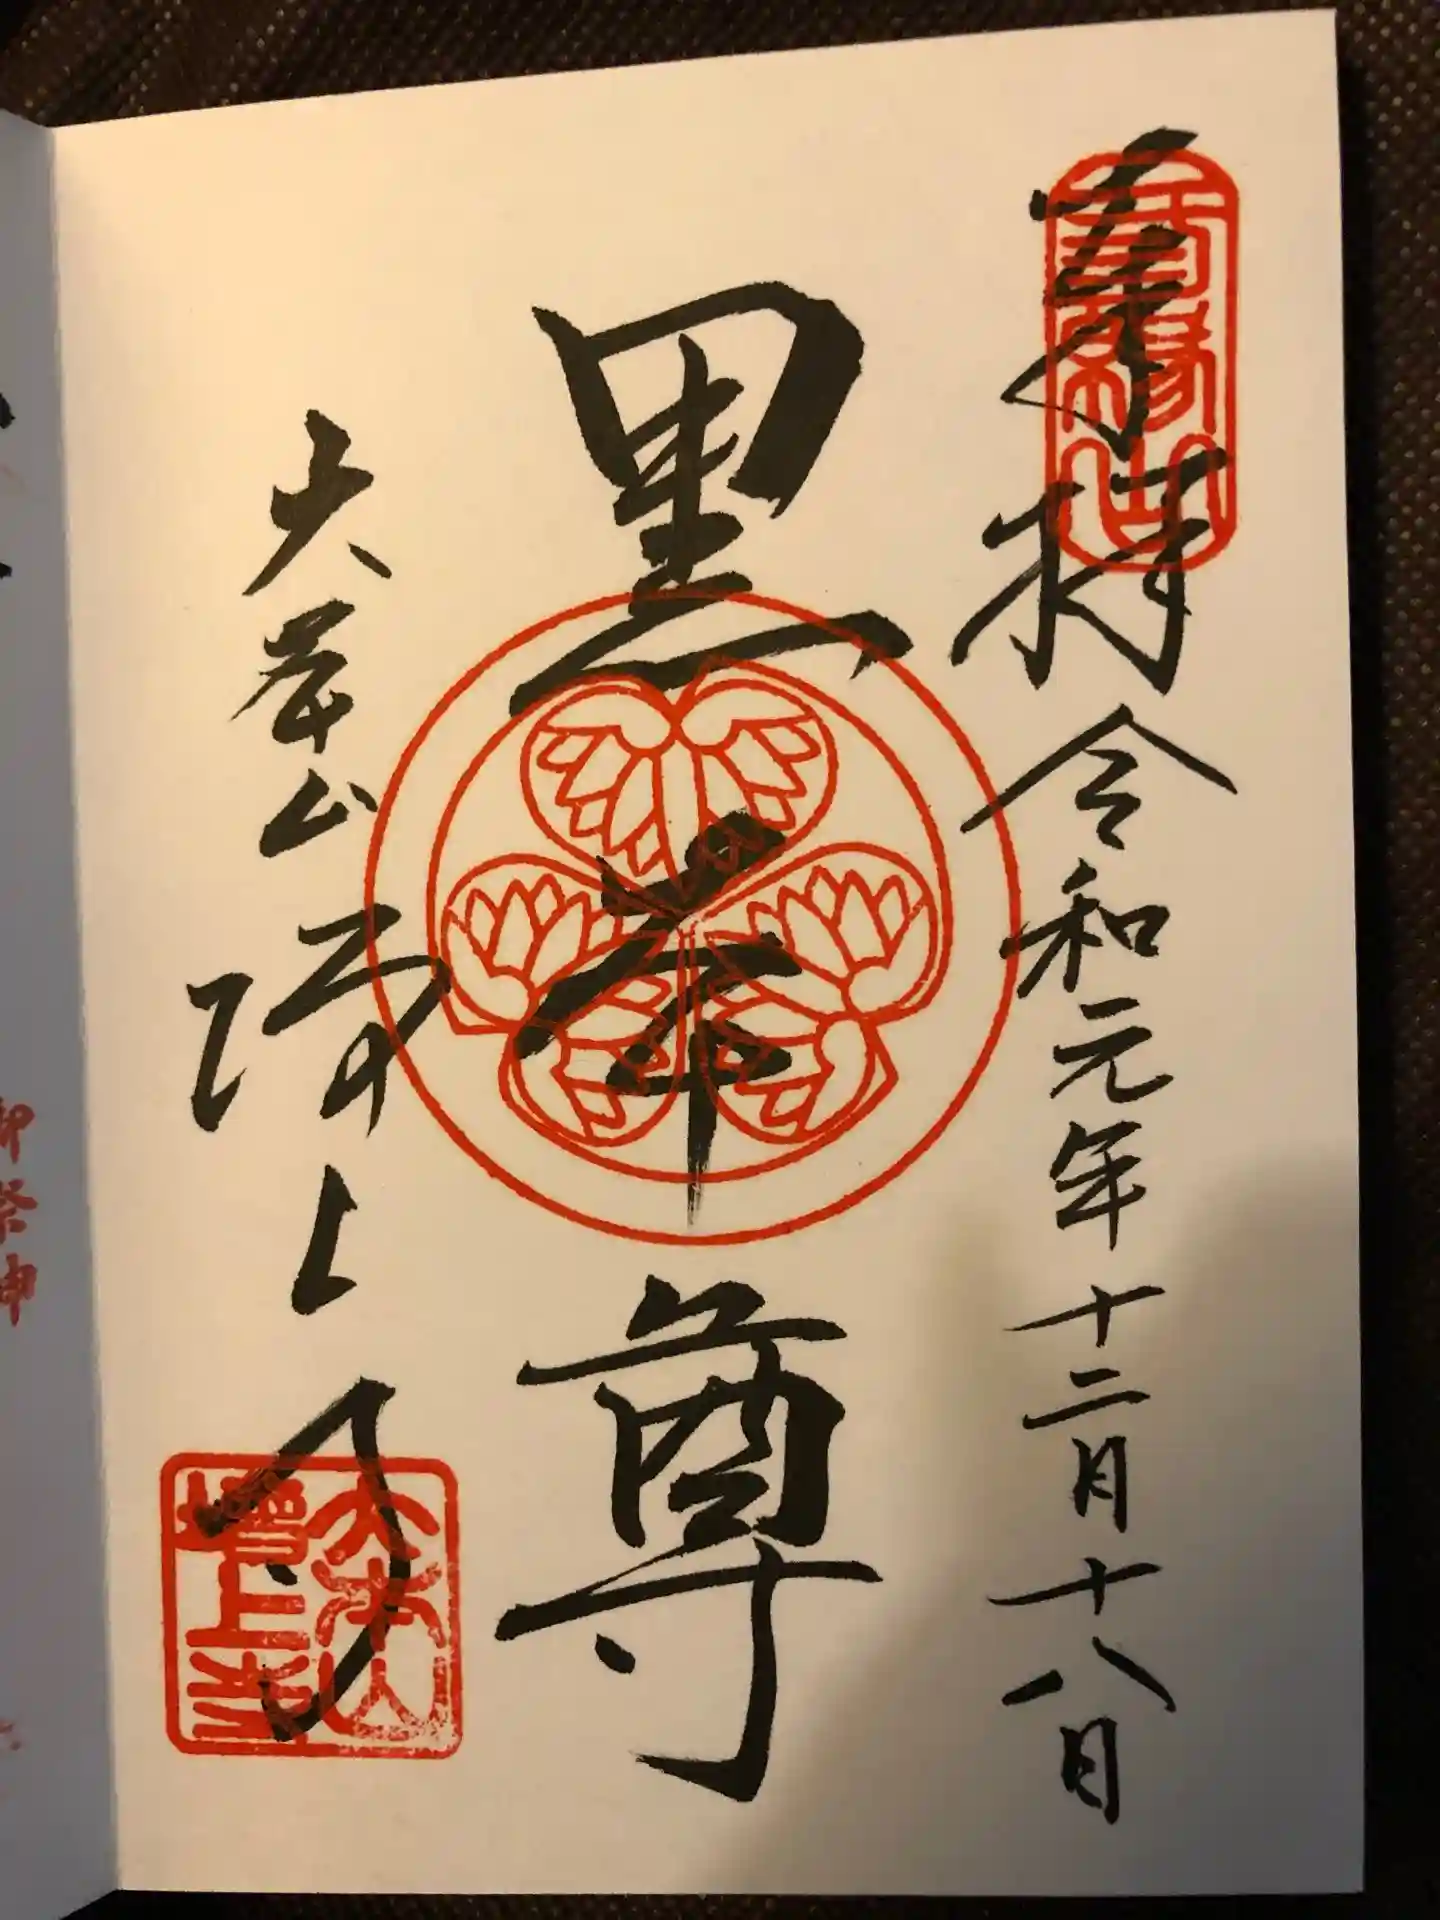 奉拝
令和元年十二月十八日
黒本尊
大本山
増上寺
三縁山
大本山
増上寺
御祭神